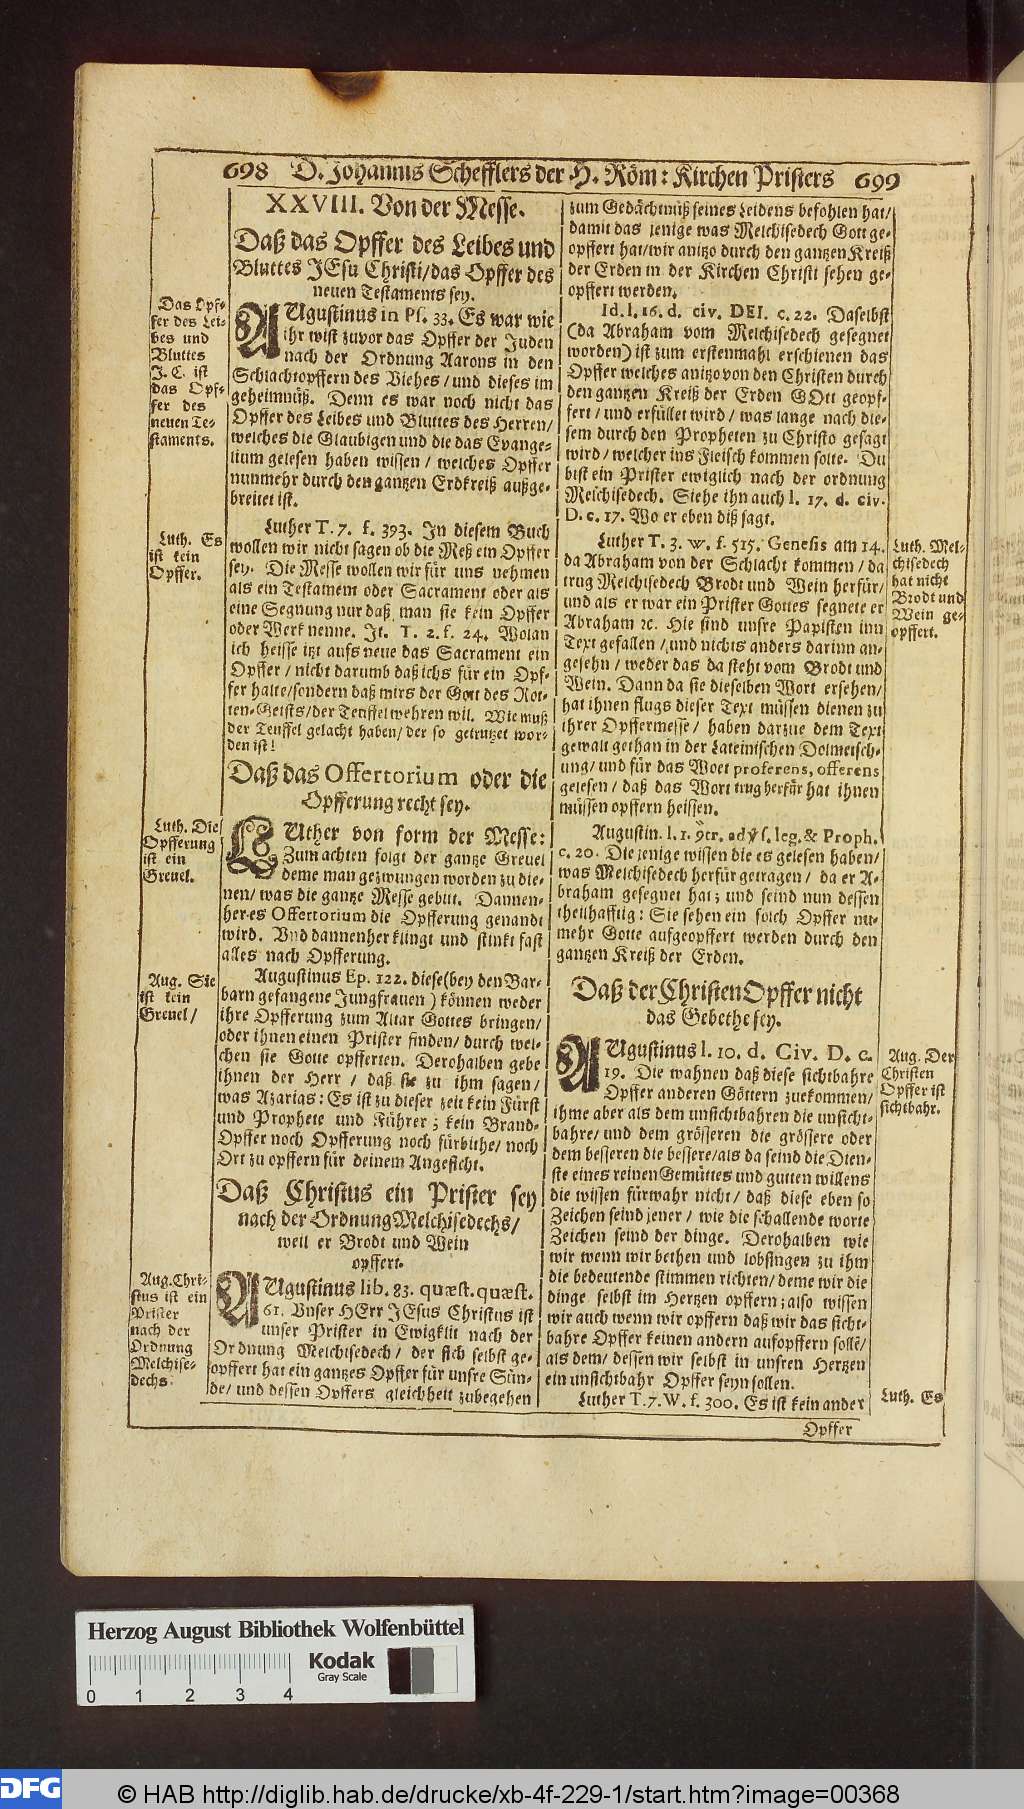 698 D. Johannis Schefflers der H. Röm: Kirchen Pristers 699
XXVIII. Von der Messe.
Daß das Opffer des Leibes und
Bluttes JEsu Christi/das Opffer des
neuen Testaments sey.
Das Opf-
fer des Lei-
bes und
Bluttes
J. C. ist
das Opf-
fer des
neuen Te-
staments.
AUgustinus in Ps. 33. Es war wie
ihr wist zuvor das Opffer der Juden
nach der Ordnung Aarons in den
Schlachtopffern des Viehes/und dieses im
geheimnüß. Denn es war noch nicht das
Opffer des Leibes und Bluttes des Herren/
welches die Glaubigen und die das Evange-
lium gelesen haben wissen/ welches Opffer
nunmehr durch den gantzen Erdkreiß außge-
breitet ist.
Luth. Es
ist kein
Opffer.
Luther T. 7. f. 393. In diesem Buch
wollen wir nicht sagen ob die Meß ein Opffer
sey. Die Messe wollen wir für uns nehmen
als ein Testament oder Sacrament oder als
eine Segnung nur daß man sie kein Opffer
oder Werk nenne. It. T. 2. f. 24. Wolan
ich heisse itzt aufs neue das Sacrament ein
Opffer/ nicht darumb daß ichs für ein Opf-
fer halte/sondern daß mirs der Gott des Rot-
ten-Geists/der Teuffel wehren wil. Wie muß
der Teuffel gelacht haben/der so getrutzet wor-
den ist!
Daß das Offertorium oder die
Opfferung recht sey.
Luth. Die
Opfferung
ist ein
Greuel.
LUther von form der Messe:
Zum achten folgt der gantze Greuel
deme man gezwungen worden zu die-
nen/ was die gantze Messe gebiut. Dannen-
her es Offertorium die Opfferung genandt
wird. Und dannenher klingt und stinkt fast
alles nach Opfferung.
Aug. Sie
ist kein
Greuel/
Augustinus Ep. 122. diese(bey den Bar-
barn gefangene Jungfrauen) können weder
ihre Opfferung zum Altar Gottes bringen/
oder ihnen einen Prister finden/ durch wel-
chen sie Gotte opfferten. Derohalben gebe
ihnen der Herr/ daß sie zu ihm sagen/
was Azarias: Es ist zu dieser zeit kein Fürst
und Prophete und Führer; kein Brand-
Opffer noch Opfferung noch fürbithe/ noch
Ort zu opffern für deinem Angesicht.
Daß Christus ein Prister sey
nach der Ordnung Melchisedechs/
weil er Brodt und Wein
opffert.
Aug. Chri-
stus ist ein
Prister
nach der
Ordnung
Melchise-
dechs.
AUgustinus lib. 83. quæst. quæst.
61. Unser HErr JEsus Christus ist
unser Prister in Ewigkiit nach der
Ordnung Melchisedech/ der sich selbst ge-
opffert hat ein gantzes Opffer für unsre Sün-
de/ und dessen Opffers gleichheit zubegehen
zum Gedächtnüß seines Leidens befohlen hat/
damit das jenige was Melchisedech Gott ge-
opffert hat/wir anitzo durch den gantzen Kreiß
der Erden in der Kirchen Christi sehen ge-
opffert werden.
Id. l. 16. d. civ. DEI. c. 22. Daselbst
(da Abraham vom Melchisedech gesegnet
worden) ist zum erstenmahl erschienen das
Opffer welches anitzo von den Christen durch
den gantzen Kreiß der Erden GOtt geopf-
fert/ und erfüllet wird/ was lange nach die-
sem durch den Propheten zu Christo gesagt
wird/ welcher ins Fleisch kommen solte. Du
bist ein Prister ewiglich nach der ordnung
Melchisedech. Siehe ihn auch l. 17. d. civ.
D. c. 17. Wo er eben diß sagt.
Luth. Mel-
chisedech
hat nicht
Brodt und
Wein ge-
opffert.
Luther T. 3. w. f. 515. Genesis am 14.
da Abraham von der Schlacht kommen/ da
trug Melchisedech Brodt und Wein herfür/
und als er war ein Prister Gottes segnete er
Abraham ꝛc. Hie sind unsre Papisten inn
Text gefallen/ und nichts anders darinn an-
gesehn/ weder das da steht vom Brodt und
Wein. Dann da sie dieselben Wort ersehen/
hat ihnen flugs dieser Text müssen dienen zu
ihrer Opffermesse/ haben darzue dem Text
gewalt gethan in der Lateinischen Dolmetsch-
ung/ und für das Woet proferens, offerens
gelesen/ daß das Wort trug herfür hat ihnen
müssen opffern heissen.
Augustin. l. 1. ꝯtr. adṽs. leg. & Proph.
c. 20. Die jenige wissen die es gelesen haben/
was Melchisedech herfür getragen/ da er A-
braham gesegnet hat; und seind nun dessen
theilhafftig: Sie sehen ein solch Opffer nu-
mehr Gotte aufgeopffert werden durch den
gantzen Kreiß der Erden.
Daß der Christen Opffer nicht
das Gebethe sey.
Aug. Der
Christen
Opffer ist
sichtbahr.
AUgustinus l. 10. d. Civ. D. c.
19. Die wahnen daß diese sichtbahre
Opffer anderen Göttern zuekommen/
ihme aber als dem unsichtbahren die unsicht-
bahre/ und dem grösseren die grössere oder
dem besseren die bessere/als da seind die Dien-
ste eines reinen Gemüttes und gutten willens
die wissen fürwahr nicht/ daß diese eben so
Zeichen seind jener/ wie die schallende worte
Zeichen seind der dinge. Derohalben wie
wir wenn wir bethen und lobsingen zu ihm
die bedeutende stimmen richten/ deme wir die
dinge selbst im Hertzen opffern; also wissen
wir auch wenn wir opffern daß wir das sicht-
bahre Opffer keinen andern aufopffern sollē/
als dem/ dessen wir selbst in unsren Hertzen
ein unsichtbahr Opffer seyn sollen.
Luth. Es
Luther T. 7. W. f. 300. Es ist kein ander
Opffer
Herzog August Bibliothek Wolfenbüttel
Kodak
Gray Scale
0 1 2 3 4
DFG © HAB http://diglib.hab.de/drucke/xb-4f-229-1/start.htm?image=00368